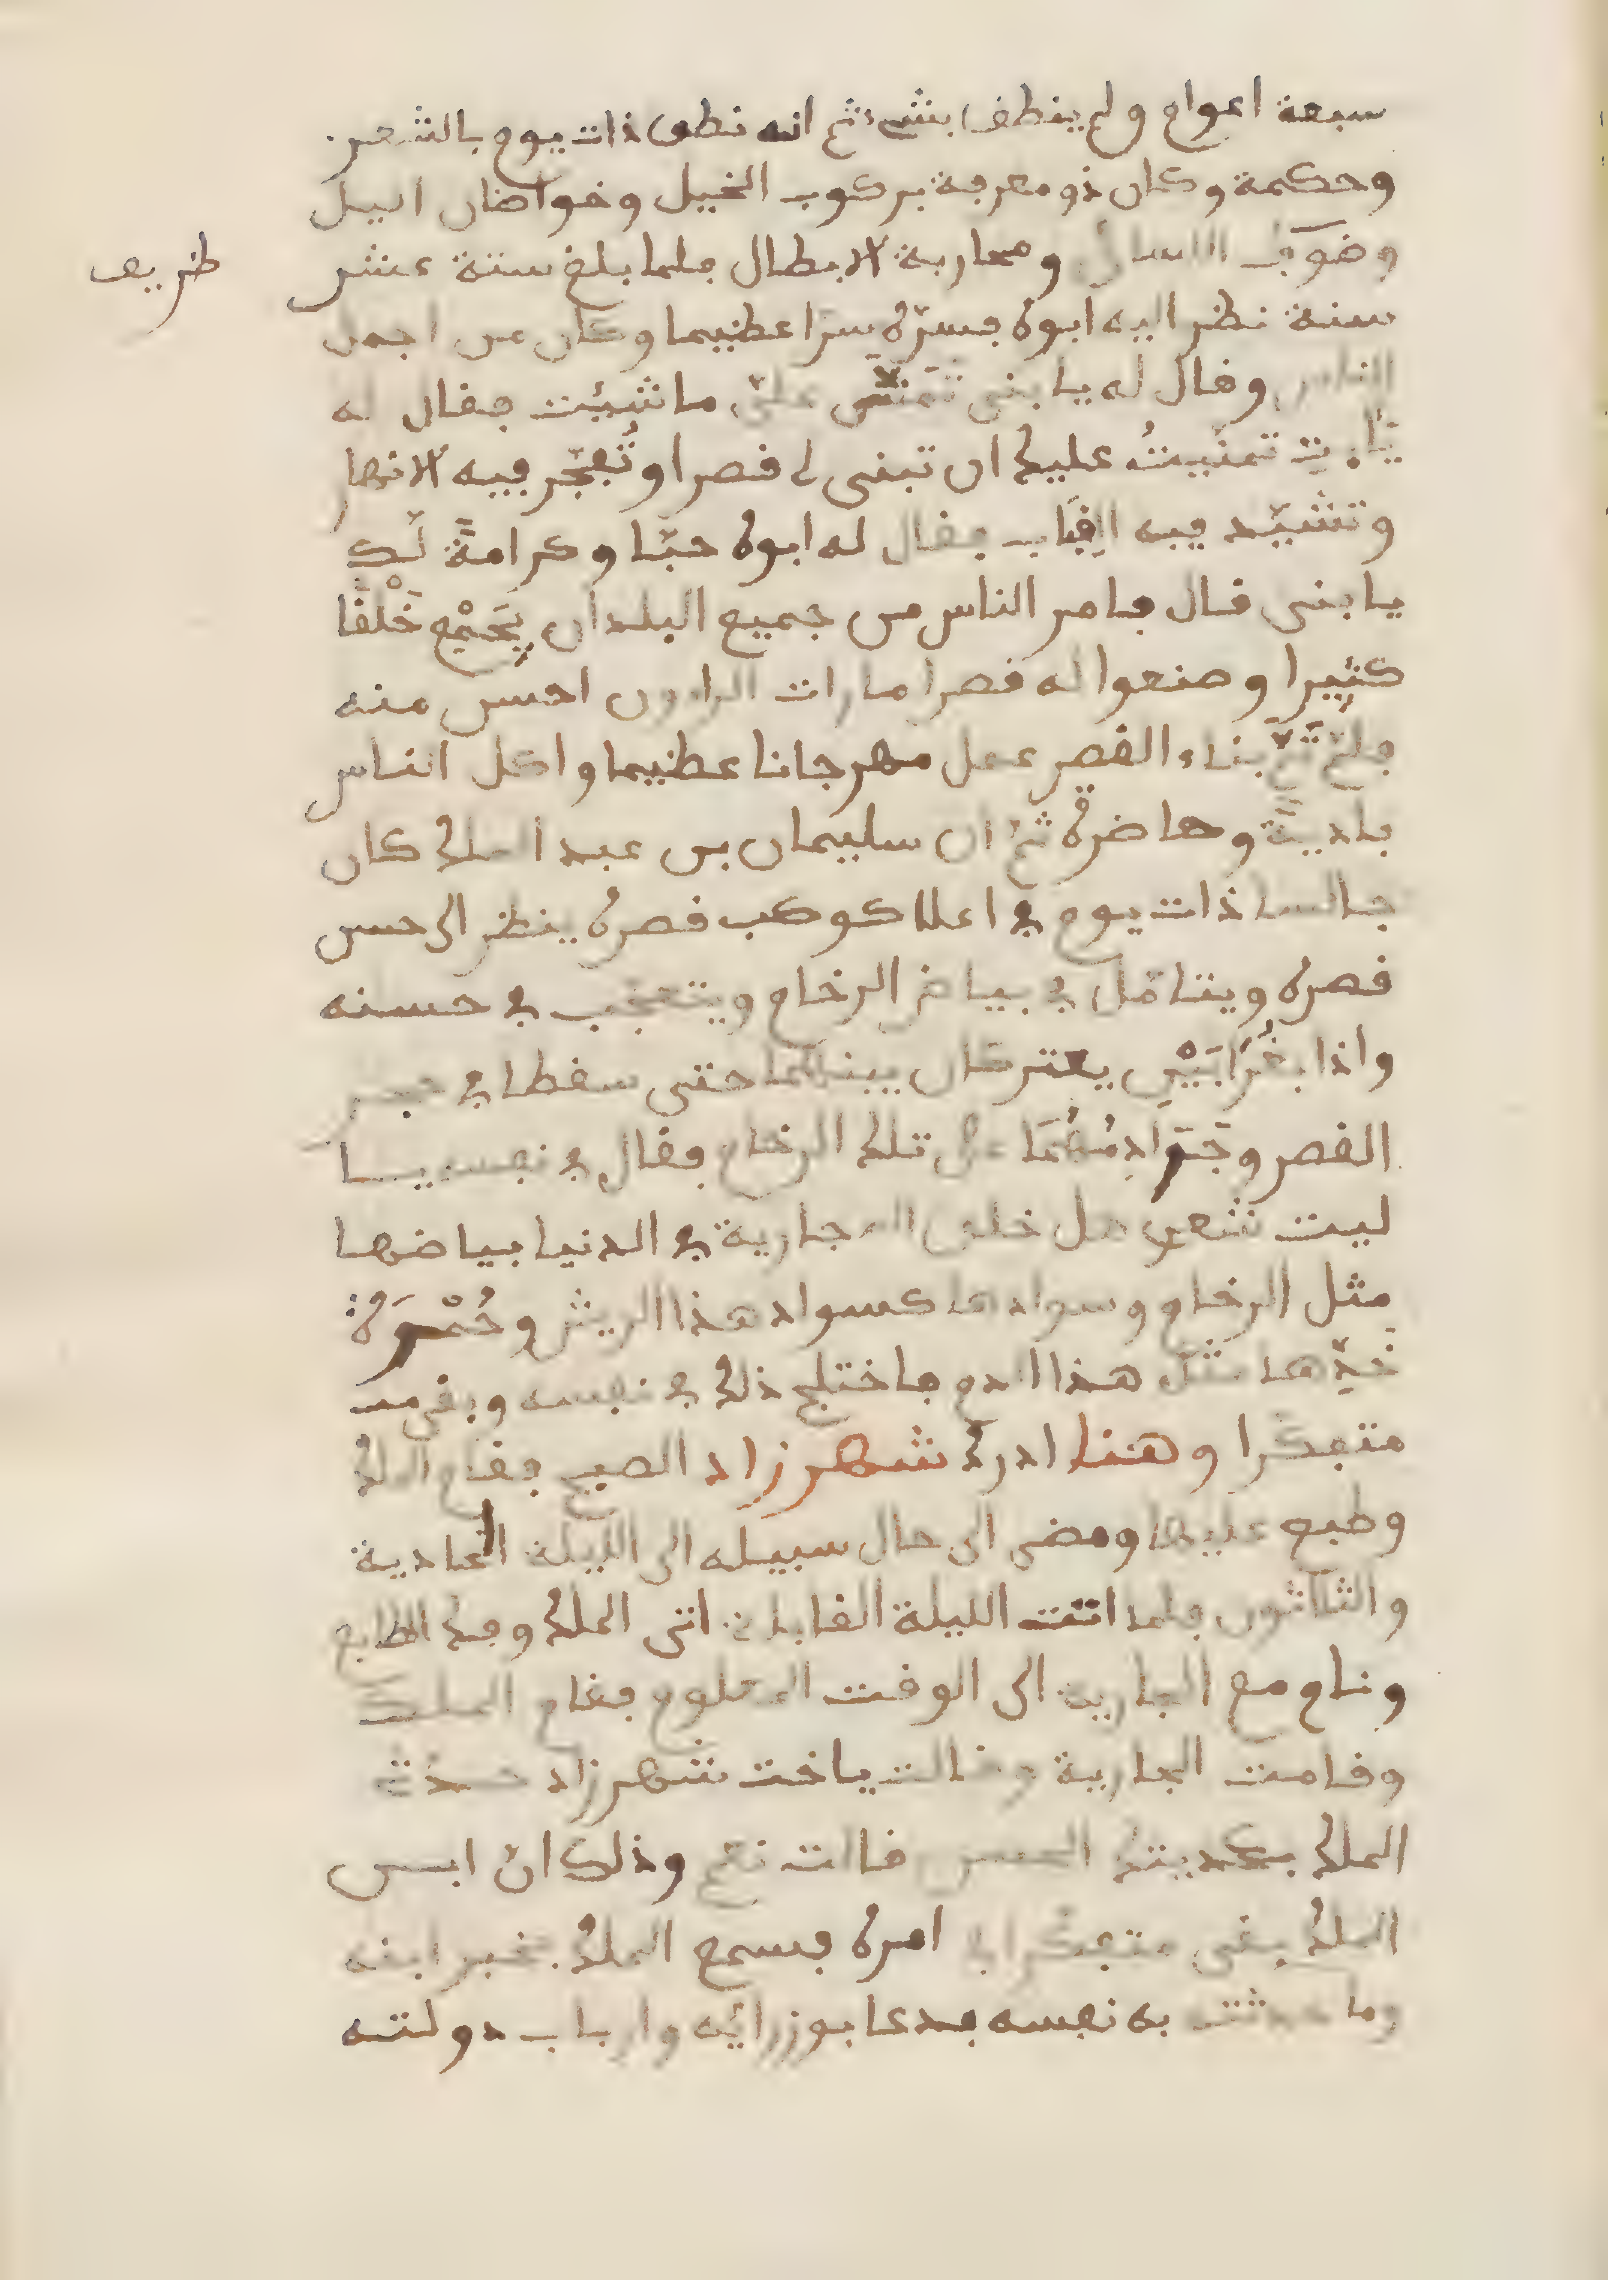 سبعة اعوام ولم ينطق بشيء ثم انه نطق ذات يوم بالشعر
وحكمة وكان ذو معرفة بركوب الخيل وخواضان اليل
ومحاربة الابطال فلما بلغ ستة عشر
ظريف
سنة نظر اليه ابوه فسرّه سرّا عظيما وكان من اجمل
الناس وقال له يا بنى تمنّى علىّ ما شئت فقال له
يا ابت تمنيتُ عليك ان تبنى لى قصرا وتُفجّر فيه الانهار
وتشيّد فيه القِبَاب فقال له ابوه حبّا وكرامةً لّك
يا بنى قال فامر الناس من جميع البلدان بِجَمْع خَلْقًا
كثيرا وصنعوا له قصرا ما رات الراءون احسن منه
فلمّ تَمّ بناء القصر عمل مهرجانا عظيما واكل الناس
بادية وحاضرة ثم ان سليمان بن عبد الملك كان
جالسا ذات يوم في اعلا كوكب قصره ينظر الى حسن
قصره ويتامّل في بياض الرخام ويتعجّب في حسنه
واذا بغُرَابَيْنِ يعتركان بينهما حتى سقطا في حجر
القصر وجَرَا دِمُهُمَا على تلك الرخام فقال في نفسه يا
ليت شعرى هل خلق الله جارية في الدنيا بياضها
مثل الرخام وسوادها كسواد هذا الريش وحُمْرَة
خَدِّها مثل هذا الدم فاختلج ذلك في نفسه وبقى
متفكرا وهنا ادرك شهرزاد الصبح فقام الملك
وطبع عليها ومضى الى حال سبيله الى الليلة الحادية
والثلاثون فلما اتت الليلة القابلة اتى الملك وفك الطابع
ونام مع الجارية الى الوقت المعلوم فقام الملك
وقامت الجارية وقالت يا خت شهرزاد حدّث
الملك بحديثك الحسن قالت نعم وذلك انّ ابن
الملك بقى متفكرا في امره فسمع الملك بخبر ابنه
وما حدثت به نفسه فدعا بوزرائه وارباب دولته